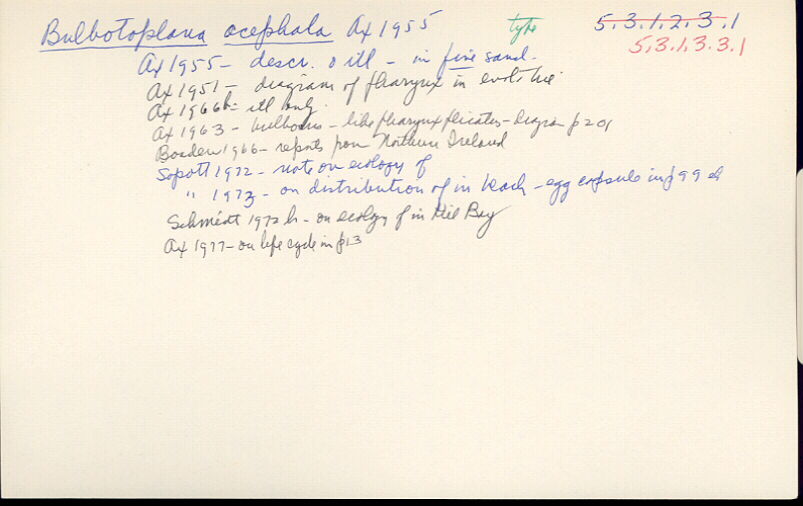 Bulbotoplana acephala Ax 1955 type 5.3.1.2.3.1
5.3.1.3.3.1
Ax 1955 - descr. & ill - in fine sand.
Ax 1951 - diagram of pharynx in evol. tree.
Ax 1966b - ill only.
Ax 1963 - bulbosus - like pharynx plicatus - diagram p 201
Boaden 1966 - reports from Northern Ireland
Sopott 1972 - note on ecology of
" 1973 - on distribution of in beach - egg capsule in p 99 ch
Schmidt 1972b - on ecology of in Kiel Bay
Ax 1977 - on life cycle in p13